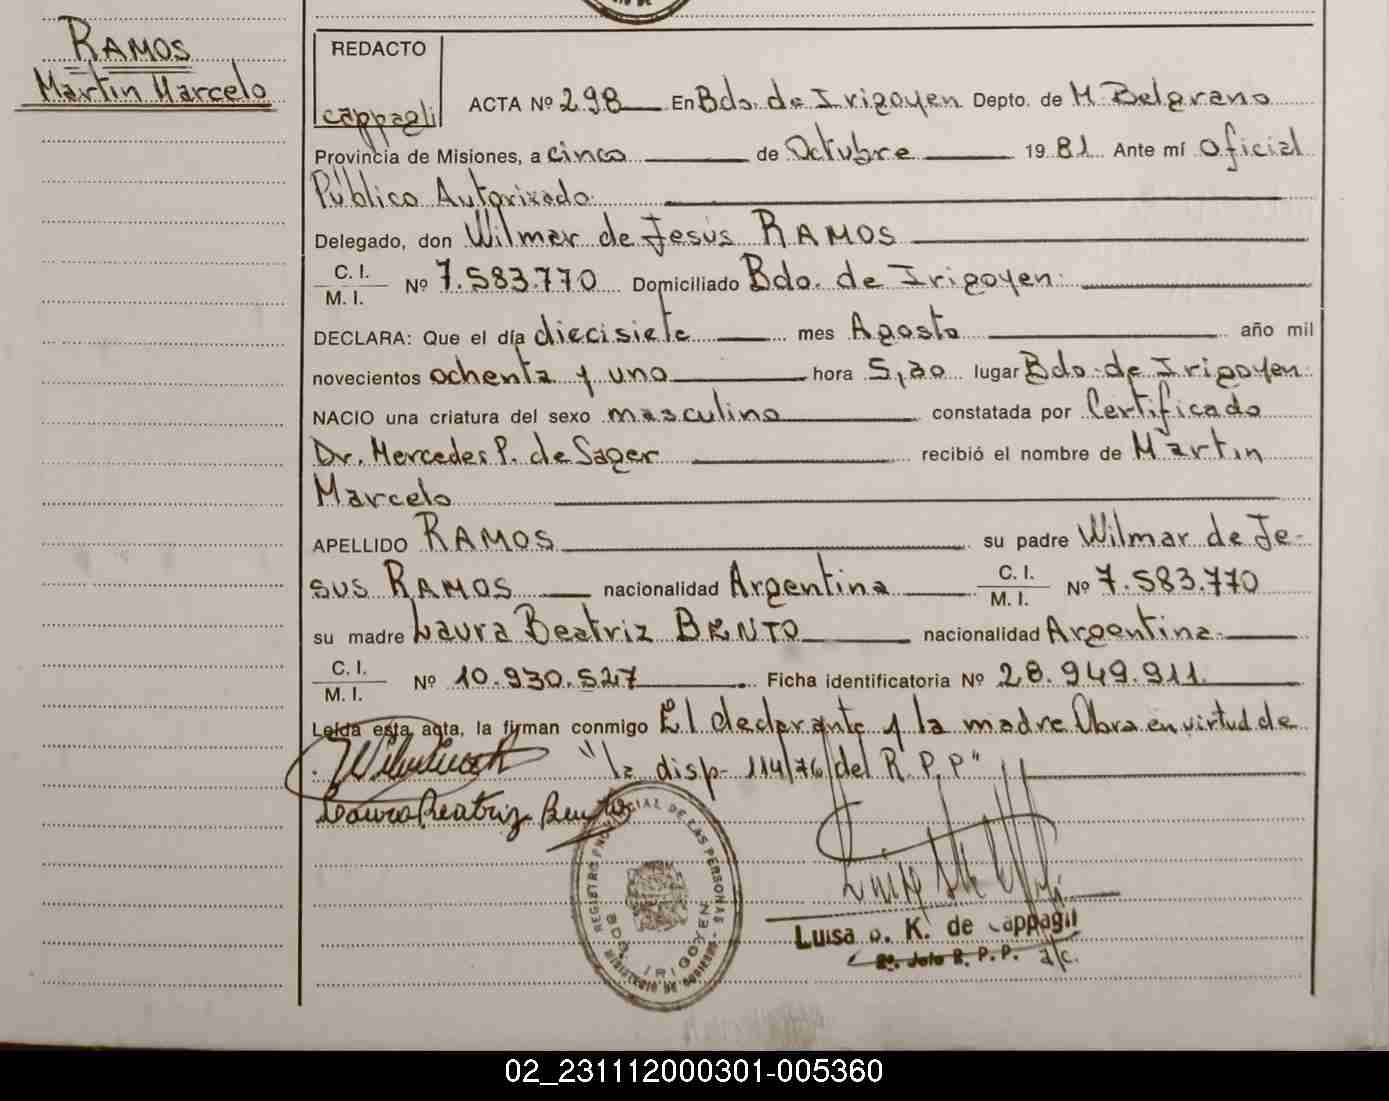 RAMOS
Martin Marcelo
REDACTO
cappagli
ACTA Nº 298 En Bdo. de Irigoyen Depto. de M. Belgrano
Provincia de Misiones, a cinco de Octubre 19 81 Ante mí Oficial
Público Autorizado.
Delegado, don Wilmar de Jesús RAMOS
C. I.
M. I. Nº 7.583.770 Domiciliado Bdo. de Irigoyen.
DECLARA: Que el día diecisiete mes Agosto año mil
novecientos ochenta y uno hora 5,30 lugar Bdo. de Irigoyen.
NACIO una criatura del sexo masculino constatada por Certificado
Dr. Mercedes P. de Sager recibió el nombre de Martin
Marcelo
APELLIDO RAMOS su padre Wilmar de Je-
sus RAMOS nacionalidad Argentina C. I.
M. I. Nº 7.583.770
su madre Laura Beatriz BENTO nacionalidad Argentina
C. I.
M. I. Nº 10.930.527 Ficha identificatoria Nº 28.949.911
Leída esta acta, la firman conmigo El declarante y la madre Obra en virtud de
"la disp- 114/76 del R. P. P"
Laura Beatriz Bento
REGISTRO PROVINCIAL DE LAS PERSONAS
BDO. IRIGOYEN
MINISTERIO DE GOBIERNO
Luisa K. de Cappagli
2º. Jefe R. P. P. a/c.
02_231112000301-005360